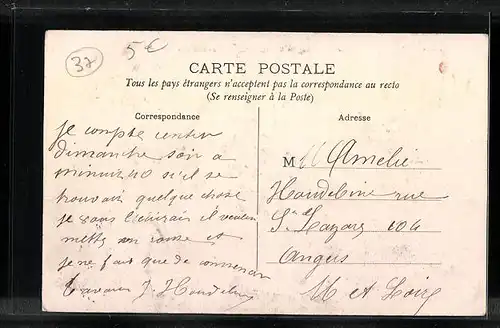 37
5€
CARTE POSTALE
Tous les pays étrangers n'acceptent pas la correspondance au recto
(Se renseigner à la Poste)
Correspondance
je compte rentrer
dimanche soir a
minuit 40 s'il se
trouvait quelque chose
je vous l'écrirais il
mettre en route et
je ne fait que de commencer
travaux J. Houdebine
Adresse
M lle Amelie
Houdebine rue
St Lazare 104
Angers
M et Loire